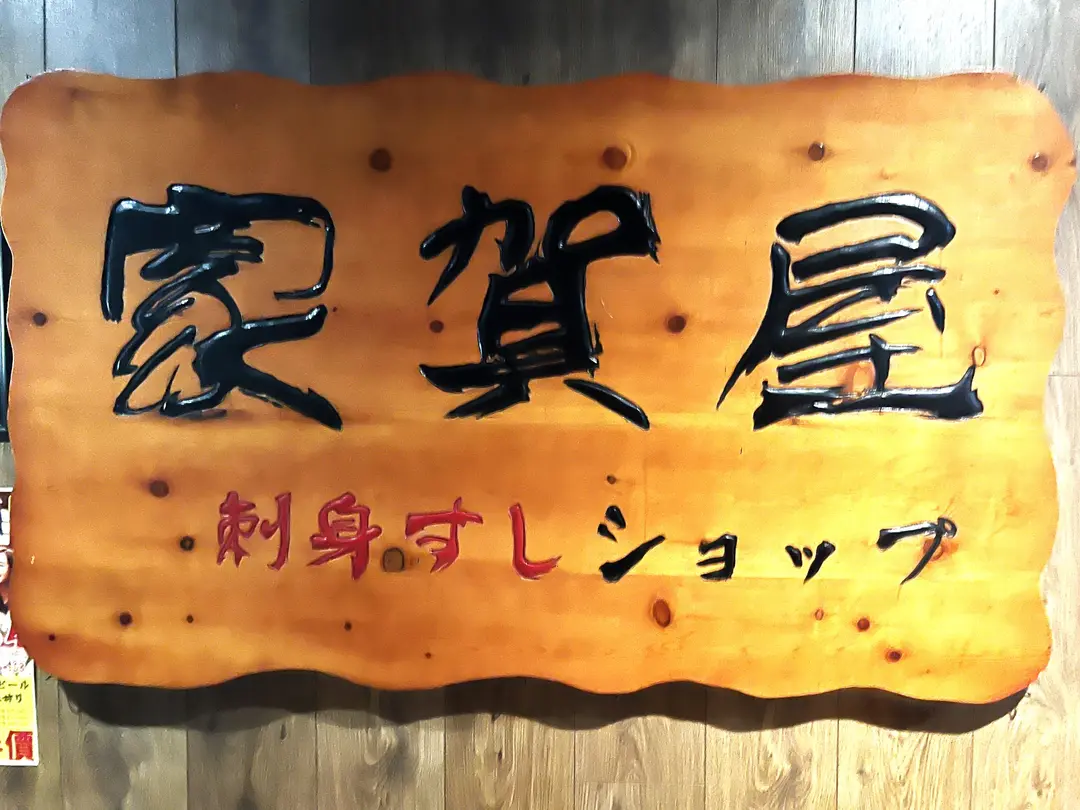 家賀屋
刺身すしショップ
ビール
價